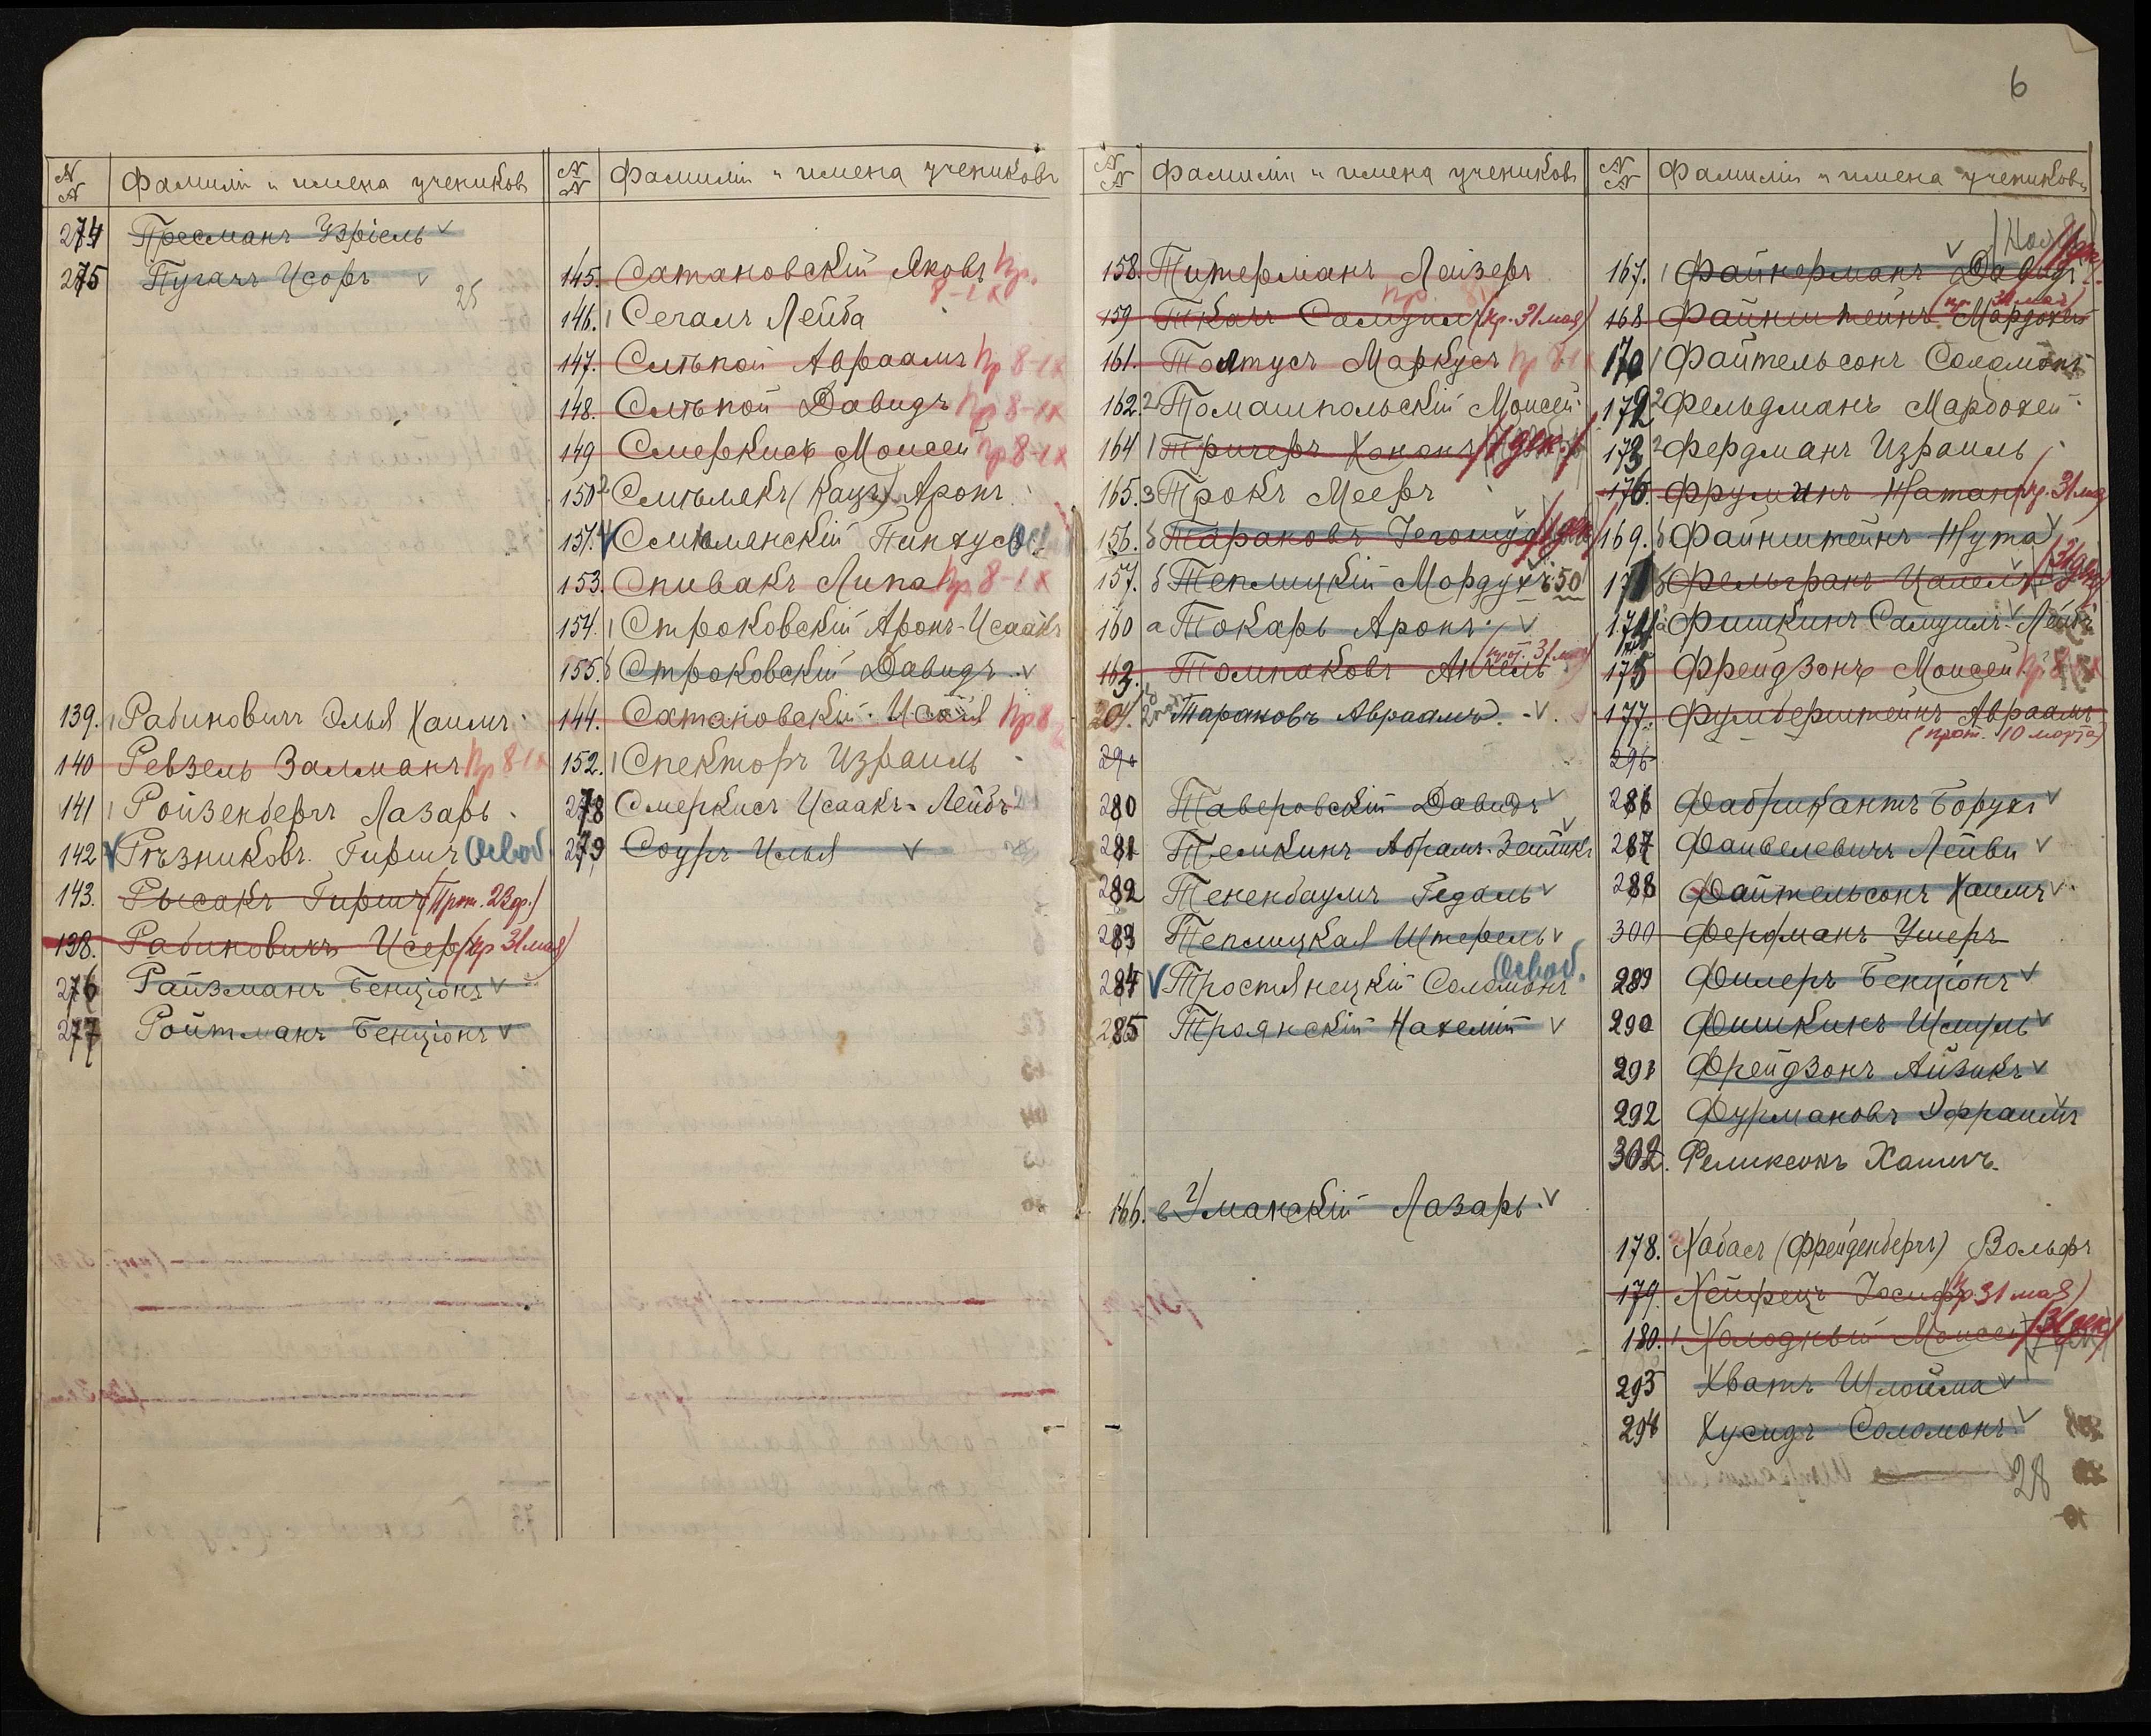 6
N N Фамиліи и имена учениковъ
274 Пресманъ Узріель v
275 Пугачъ Исоръ v
25
139. 1 Рабиновичъ Элья Хаимъ.
140 Ревзель Залманъ Пр 8-IX
141 1 Ройзенбергъ Лазарь.
142 V Рѣзниковъ Гиршъ Освоб.
143. Рысакъ Гиршъ (Прот. 22 ф.)
138. Рабиновичъ Исеръ (пр 31 мая)
276 Райзманъ Бенціонъ v
277 Ройтманъ Бенціонъ v
N N Фамиліи и имена учениковъ
145. Сатановскій Яковъ Пр. 8-IX
146. 1 Сегалъ Лейба
147. Слѣпой Авраамъ Пр 8-IX
148. Слѣпой Давидъ Пр 8-IX
149 Смеркисъ Моисей Пр 8-IX
150 2 Смѣлякъ (Кацъ) Аронъ
151. V Смѣлянскій Пинхус
153. Спивакъ Липа Пр 8-IX
154. 1 Строковскій Аронъ-Исаакъ
155. б Строковскій Давидъ v
144. Сатановскій Исаія Пр 8
152. 1 Спекторъ Израиль
278 Смеркисъ Исаакъ-Лейбъ
279 Соуръ Илья v
N N Фамиліи и имена учениковъ
158. Титерманъ Лейзеръ Пр.
159 Ткачъ Самуилъ (пр. 31 мая)
161. Толтусъ Маркусъ Пр 8-IX
162. 2 Томашпольскій Моисей
164 1 Тригеръ Хананъ / 1 дек. /
165. 3 Трокъ Мееръ
156. б Тараковъ Іегошуа / 1 дек /
157. б Теплицкій Мордухъ 50
160 а Токарь Аронъ v
163. Толпаковъ Анчель (прот. 31 мая)
204. Тараковъ Авраамъ. v.
280 Таверовскій Давидъ v
281 Темкинъ Абрамъ-Зейликъ v
282 Тененбаумъ Гедаль v
283 Теплицкая Штерель v
284 V Тростянецкій Соломонъ Освоб.
285 Троянскій Нахемій v
166. в Уманскій Лазарь v
N N Фамиліи и имена учениковъ
167. 1 Файнерманъ Давидъ v
168 Файнштейнъ Мардохей (пр. 31 мая)
170 1 Файтельсонъ Соломонъ
172 2 Фельдманъ Мардохей
173 2 Фердманъ Израиль
176. Фруминъ Натан (пр. 31 мая)
169. б Файнштейнъ Нута v
171 б Цалел / 31 дек /
174 а Фишкинъ Самуилъ v
175 Фрейдзонъ Моисей Пр 8-IX
177. Фумберштейнъ Авраамъ (прот. 10 марта)
296
286 Фабрикантъ Борухъ v
287 Файвелевичъ Лейви v
288 Файтельсонъ Хаимъ v
300 Фердманъ Ушеръ
289 Филеръ Бенціонъ v
290 Фишкинъ Шмуль v
291 Фрейдзонъ Айзикъ v
292 Фурмановъ Эфраимъ v
302. Феликсонъ Хаимъ.
178. Хабасъ (Фрейденбергъ) Вольфъ
179. Хейфецъ Іосифъ (пр 31 мая)
180. 1 Холодный Моисей / 31 дек /
293 Хватъ Шлойма v
294 Хусидъ Соломонъ v
28